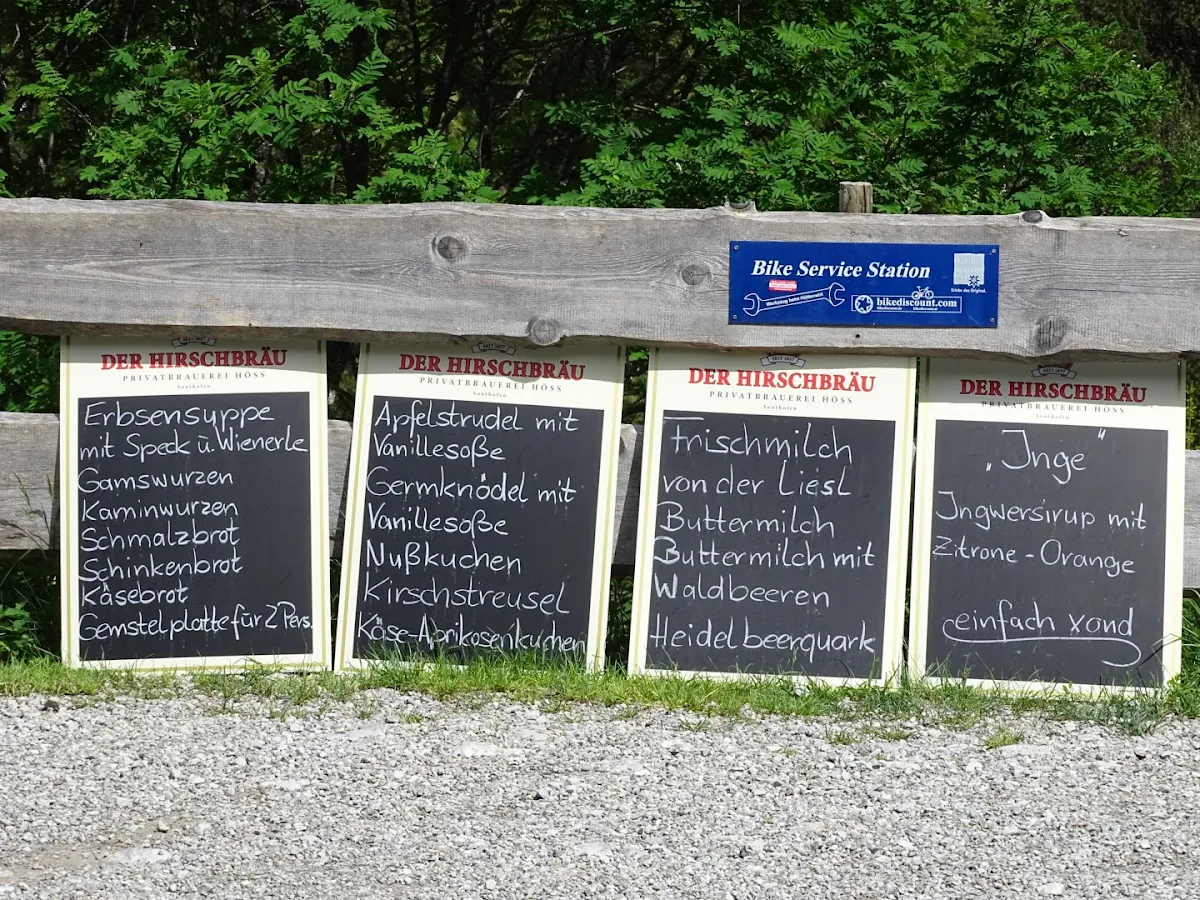 Bike Service Station
Werkzeug beim Hüttenwirt
bikediscount.com
Erlebe das Original.
SEIT 1657
DER HIRSCHBRÄU
PRIVATBRAUEREI HÖSS
Sonthofen
Erbsensuppe
mit Speck u. Wienerle
Gamswurzen
Kaminwurzen
Schmalzbrot
Schinkenbrot
Käsebrot
Gemstelplatte für 2 Pers.
SEIT 1657
DER HIRSCHBRÄU
PRIVATBRAUEREI HÖSS
Sonthofen
Apfelstrudel mit
Vanillesoße
Germknödel mit
Vanillesoße
Nußkuchen
Kirschstreusel
Käse-Aprikosenkuchen
SEIT 1657
DER HIRSCHBRÄU
PRIVATBRAUEREI HÖSS
Sonthofen
Frischmilch
von der Liesl
Buttermilch
Buttermilch mit
Waldbeeren
Heidelbeerquark
SEIT 1657
DER HIRSCHBRÄU
PRIVATBRAUEREI HÖSS
Sonthofen
„Inge“
Ingwersirup mit
Zitrone - Orange
einfach xond